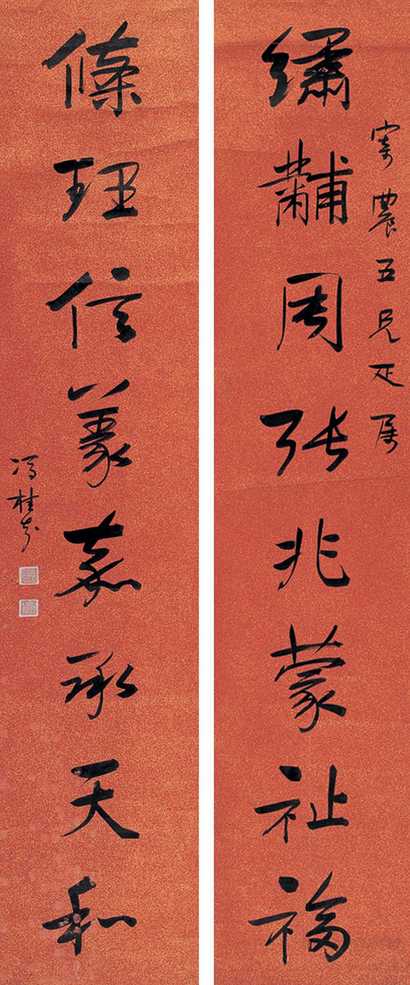 農五兄疋屬
繡黼周張兆蒙祉福
條理信義嘉承天和
馮桂芬